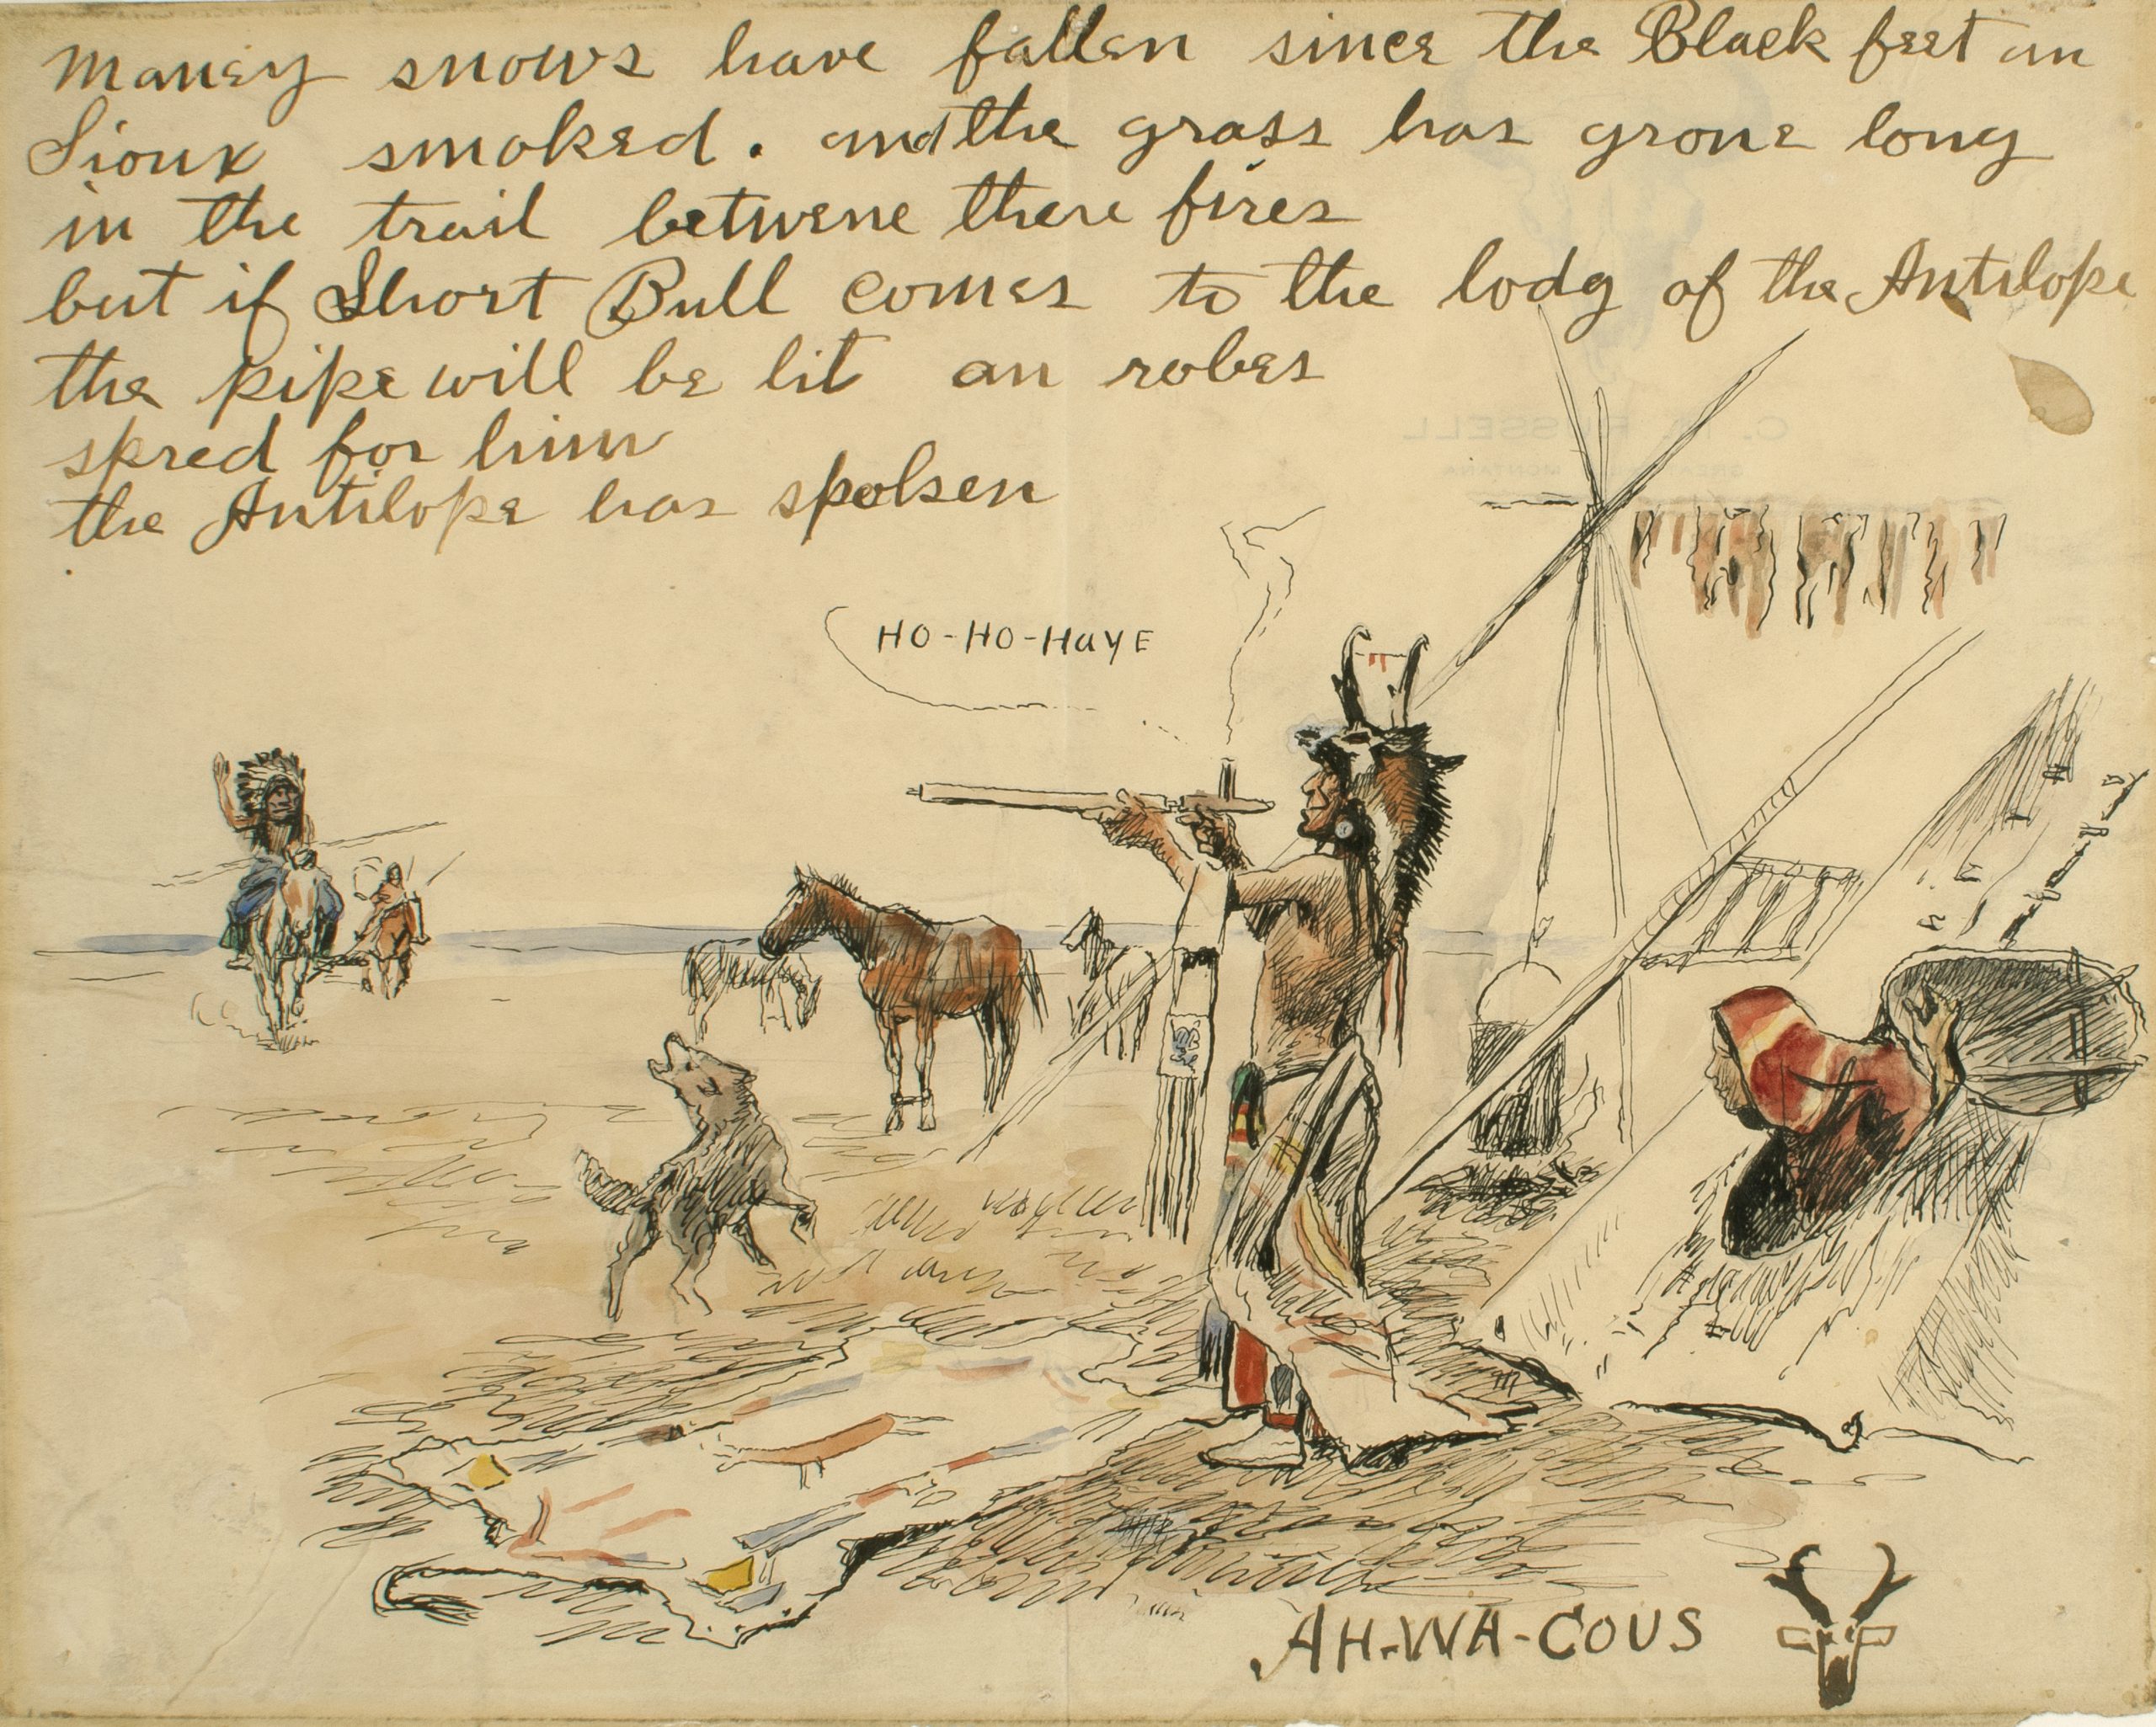 Maney snows have fallen since the Black feet an
Sioux smoked. and the grass has grone long
in the trail betwene there fires
but if Short Bull comes to the lodg of the Antilope
the pipe will be lit an robes
spred for him
the Antilope has spoken
C. M. RUSSELL
GREAT FALLS MONTANA
HO-HO-HAYE
AH-WA-COUS